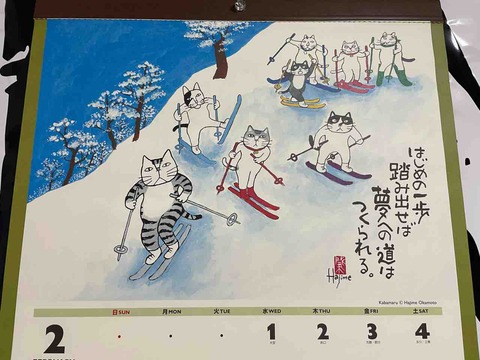 はじめの一歩
踏み出せば
夢への道は
つくられる。
Hajime
Kabamaru © Hajime Okamoto
2
日 SUN 月 MON 火 TUE 水 WED 木 THU 金 FRI 土 SAT
1 2 3 4